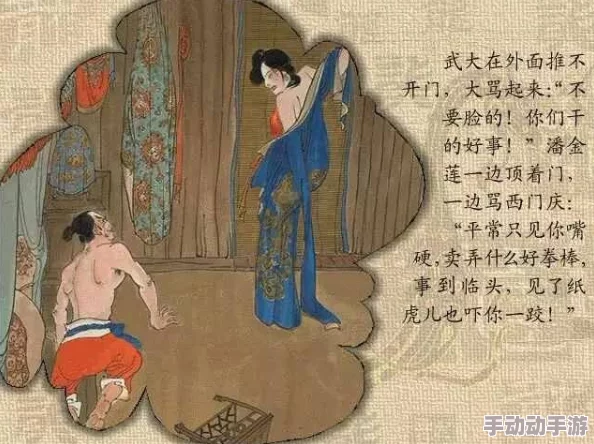 武大在外面推不
开门，大骂起来:“不
要脸的！你们干
的好事！”潘金
莲一边顶着门，
一边骂西门庆:
“平常只见你嘴
硬,卖弄什么好拳棒,
事到临头，见了纸
虎儿也吓你一跤！”
手动动手游